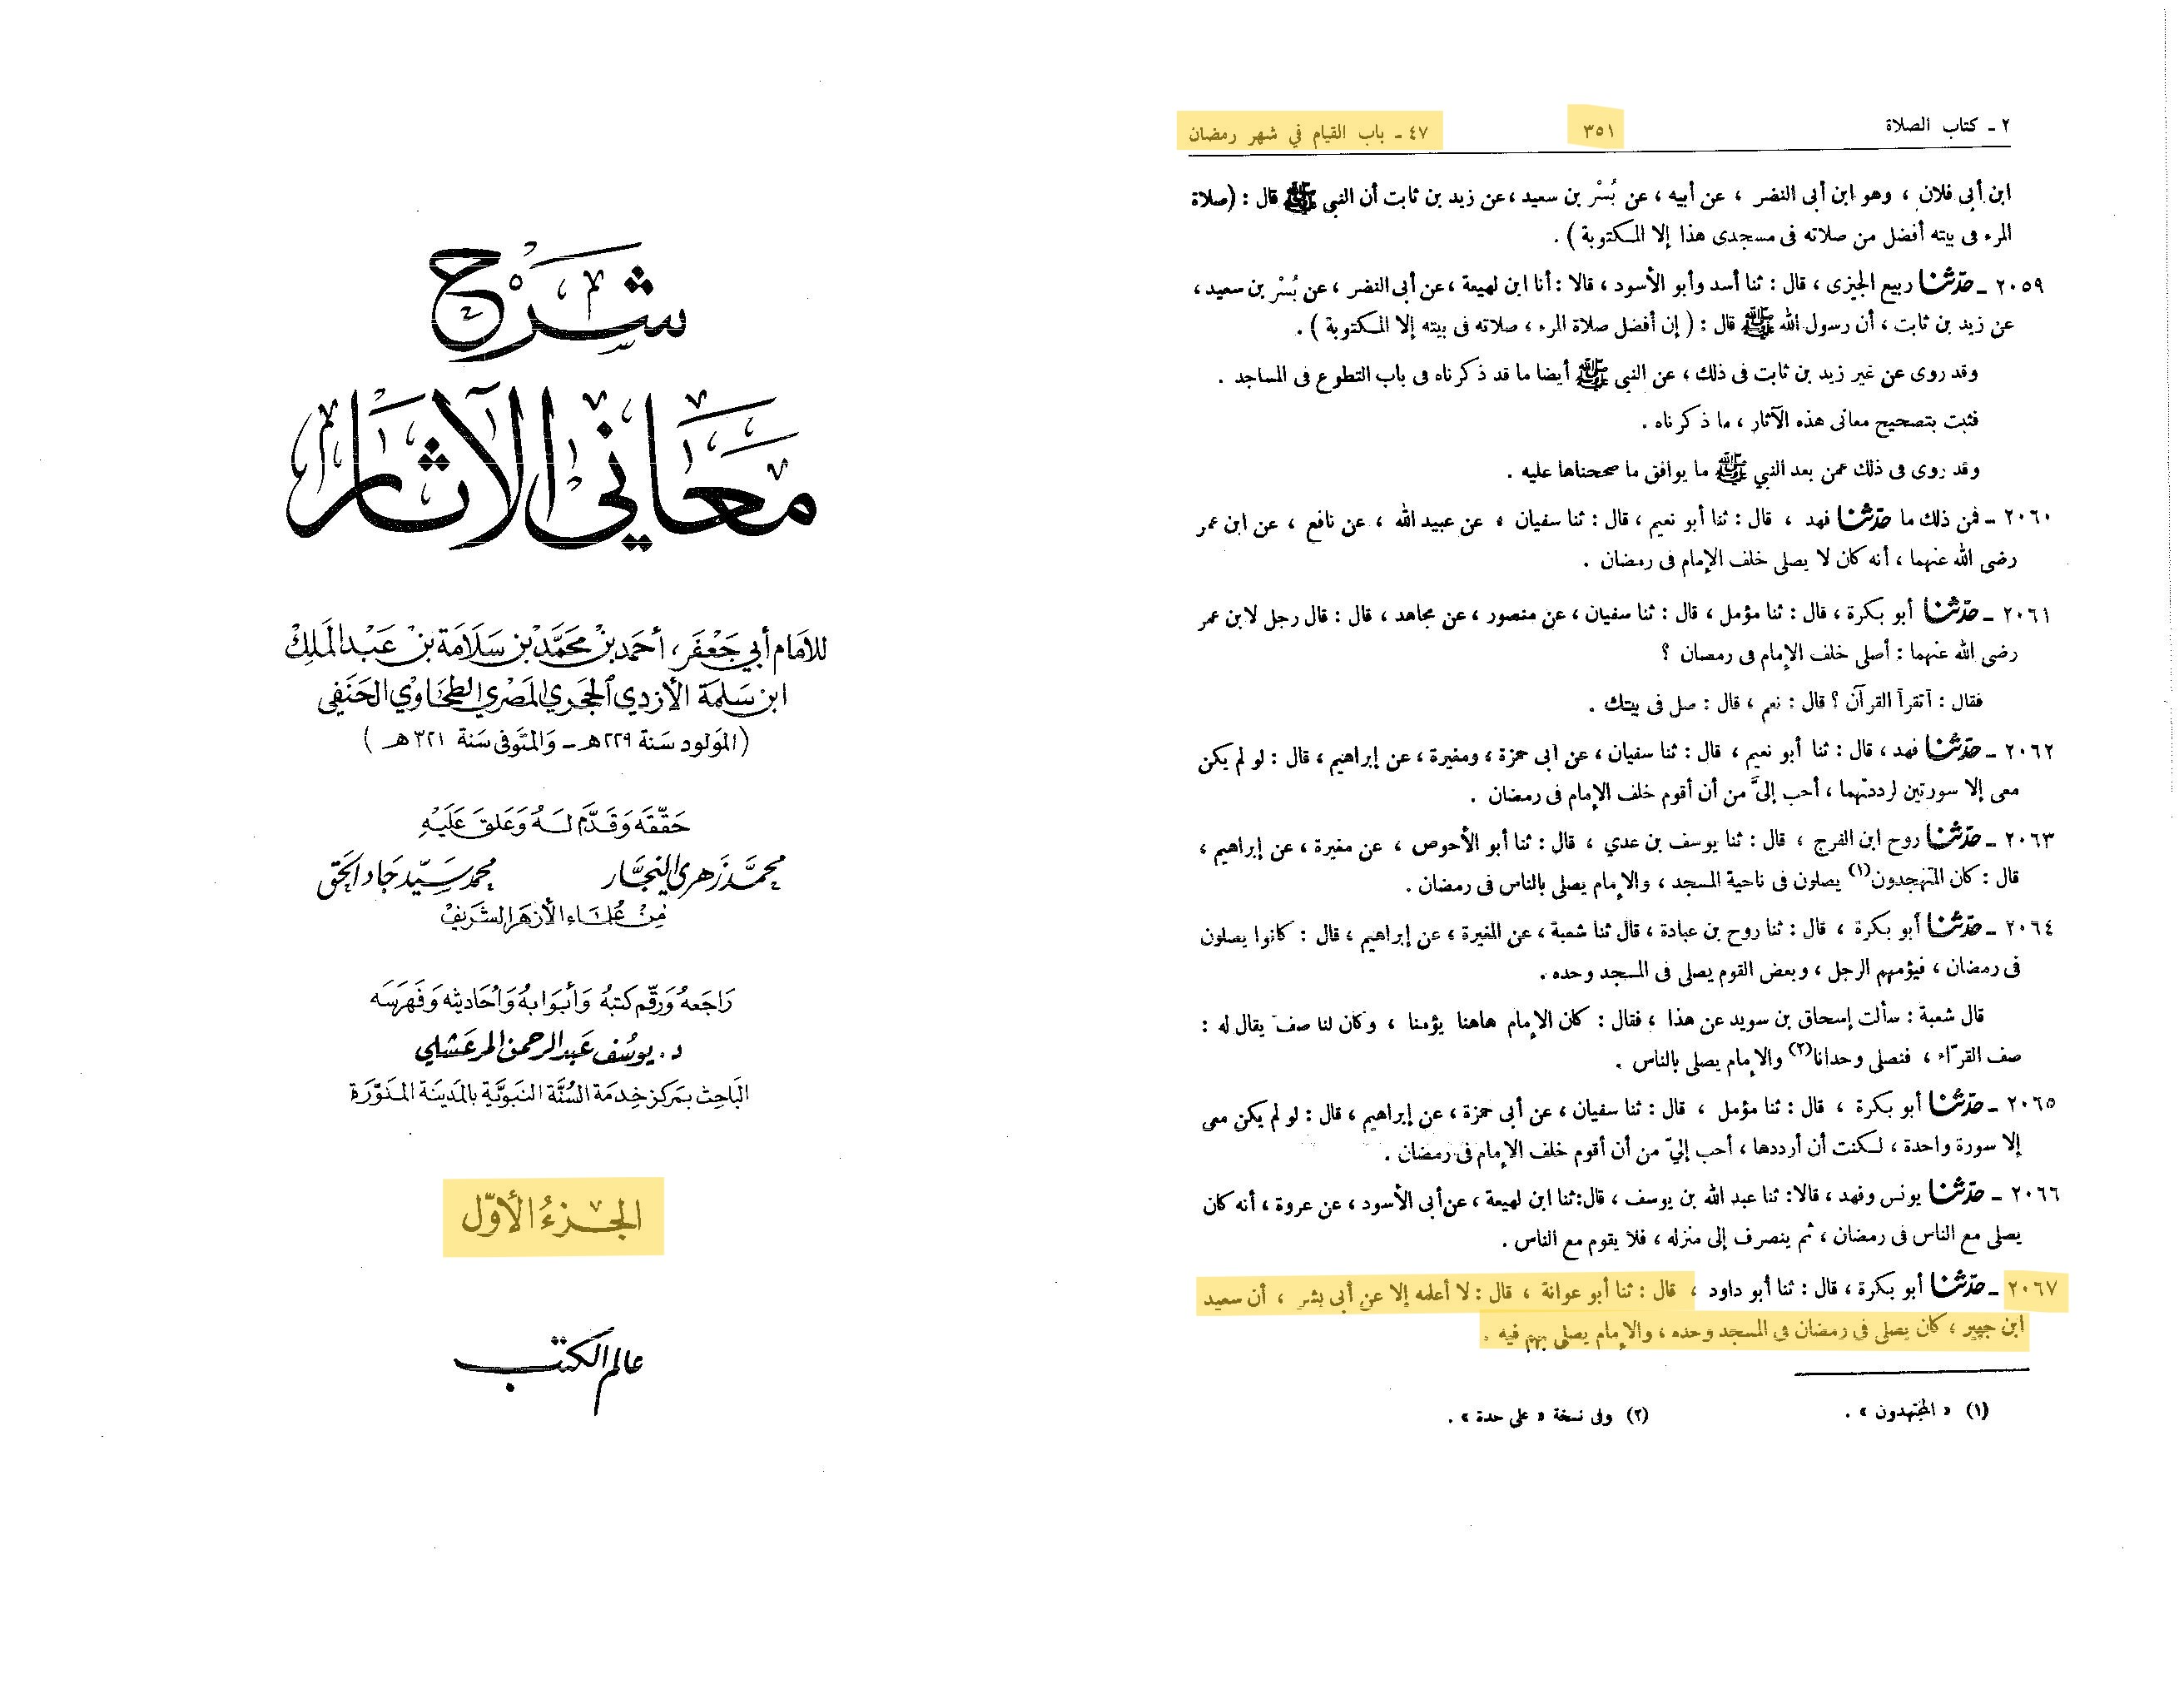 شرح
معاني الآثار
للإمام أبي جعفر، أحمد بن محمد بن سلامة بن عبد الملك
ابن سلمة الأزدي الحجري المصري الطحاوي الحنفي
(المولود سنة ٢٢٩ هـ - والمتوفى سنة ٣٢١ هـ)
حققه وقدم له وعلق عليه
محمد زهري النجار محمد سيد جاد الحق
من علماء الأزهر الشريف
راجعه ورقم كتبه وأبوابه وأحاديثه وفهرسه
د. يوسف عبد الرحمن المرعشلي
الباحث بمركز خدمة السنة النبوية بالمدينة المنورة
الجزء الأول
عالم الكتب
٢ - كتاب الصلاة ٣٥١ ٤٧ - باب القيام في شهر رمضان
ابن أبى فلان ، وهو ابن أبى النضر ، عن أبيه ، عن بُسْر بن سعيد ، عن زيد بن ثابت أن النبي ﷺ قال : (صلاة
المرء فى بيته أفضل من صلاته فى مسجدى هذا إلا المكتوبة ) .
٢٠٥٩ - حدّثنا ربيع الجيزى ، قال : ثنا أسد وأبو الأسود ، قالا : أنا ابن لهيعة ، عن أبى النضر ، عن بُسْر بن سعيد ،
عن زيد بن ثابت ، أن رسول الله ﷺ قال : ( إن أفضل صلاة المرء ، صلاته فى بيته إلا المكتوبة ) .
وقد روى عن غير زيد بن ثابت فى ذلك ، عن النبي ﷺ أيضا ما قد ذكرناه فى باب التطوع فى المساجد .
فثبت بتصحيح معانى هذه الآثار ، ما ذكرناه .
وقد روى فى ذلك عمن بعد النبي ﷺ ما يوافق ما صححناها عليه .
٢٠٦٠ - فمن ذلك ما حدّثنا فهد ، قال : ثنا أبو نعيم ، قال : ثنا سفيان ، عن عبيد الله ، عن نافع ، عن ابن عمر
رضى الله عنهما ، أنه كان لا يصلى خلف الإمام فى رمضان .
٢٠٦١ - حدّثنا أبو بكرة ، قال : ثنا مؤمل ، قال : ثنا سفيان ، عن منصور ، عن مجاهد ، قال : قال رجل لابن عمر
رضى الله عنهما : أصلى خلف الإمام فى رمضان ؟
فقال : أتقرأ القرآن ؟ قال : نعم ، قال : صل فى بيتك .
٢٠٦٢ - حدّثنا فهد ، قال : ثنا أبو نعيم ، قال : ثنا سفيان ، عن أبى حمزة ، ومغيرة ، عن إبراهيم ، قال : لو لم يكن
معى إلا سورتين لرددتهما ، أحب إلىَّ من أن أقوم خلف الإمام فى رمضان .
٢٠٦٣ - حدّثنا روح ابن الفرج ، قال : ثنا يوسف بن عدي ، قال : ثنا أبو الأحوص ، عن مغيرة ، عن إبراهيم ،
قال : كان المتهجدون(١) يصلون فى ناحية المسجد ، والإمام يصلى بالناس فى رمضان .
٢٠٦٤ - حدّثنا أبو بكرة ، قال : ثنا روح بن عبادة ، قال ثنا شعبة ، عن المغيرة ، عن إبراهيم ، قال : كانوا يصلون
فى رمضان ، فيؤمهم الرجل ، وبعض القوم يصلى فى المسجد وحده .
قال شعبة : سألت إسحاق بن سويد عن هذا ، فقال : كان الإمام هاهنا يؤمنا ، وكان لنا صف يقال له :
صف القرّاء ، فنصلى وحدانا(٢) والإمام يصلى بالناس .
٢٠٦٥ - حدّثنا أبو بكرة ، قال : ثنا مؤمل ، قال : ثنا سفيان ، عن أبى حمزة ، عن إبراهيم ، قال : لو لم يكن معى
إلا سورة واحدة ، لكنت أن أرددها ، أحب إليّ من أن أقوم خلف الإمام فى رمضان .
٢٠٦٦ - حدّثنا يونس وفهد ، قالا: ثنا عبد الله بن يوسف ، قال: ثنا ابن لهيعة ، عن أبى الأسود ، عن عروة ، أنه كان
يصلى مع الناس فى رمضان ، ثم ينصرف إلى منزله ، فلا يقوم مع الناس .
٢٠٦٧ - حدّثنا أبو بكرة ، قال : ثنا أبو داود ، قال : ثنا أبو عوانة ، قال : لا أعلمه إلا عن أبى بشر ، أن سعيد
ابن جبير ، كان يصلى فى رمضان فى المسجد وحده ، والإمام يصلى بهم فيه .
(١) « المجتهدون » . (٢) وفى نسخة « على حدة » .